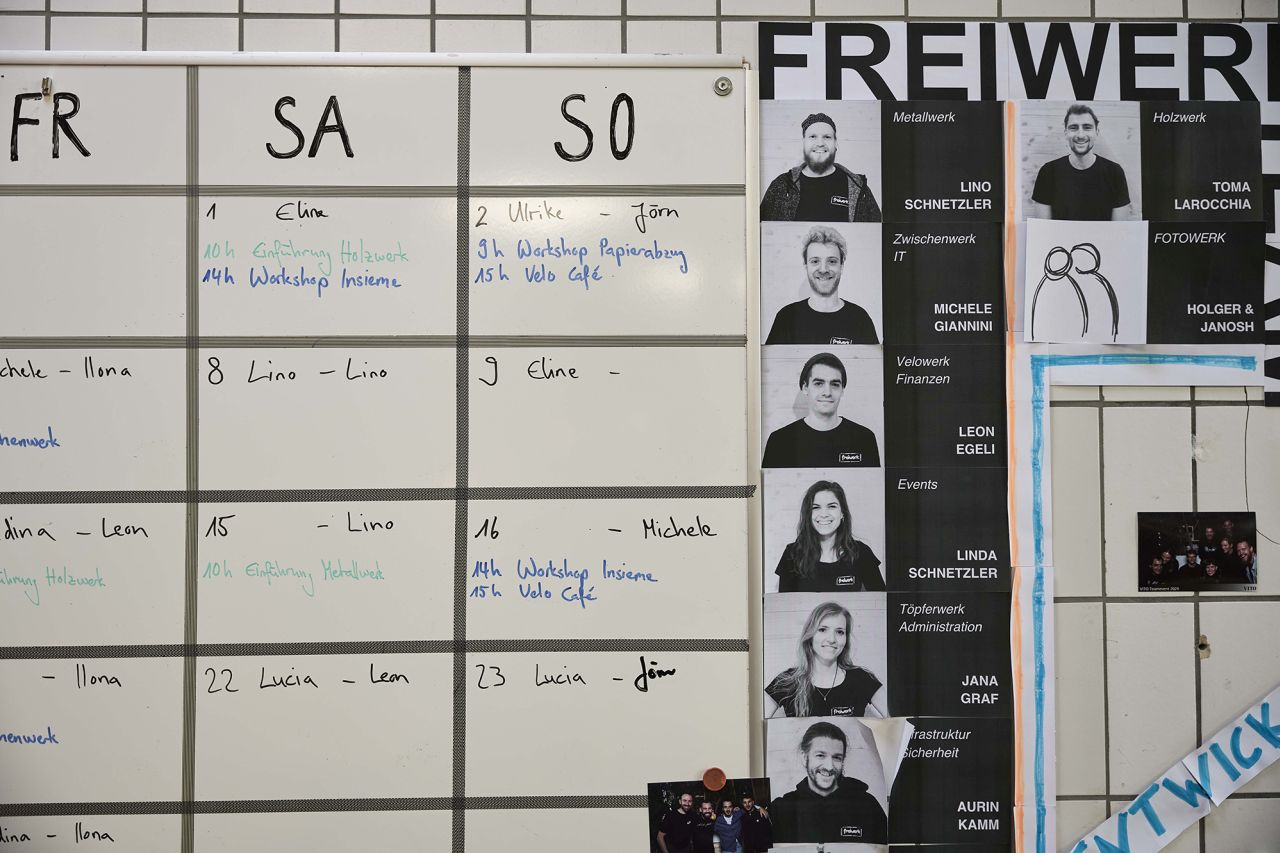 FR
SA
SO
1 Eline
10h Einführung Holzwerk
14h Workshop Insieme
2 Ulrike - Jörn
9h Workshop Papierabzug
15h Velo Café
- Ilona
8 Lino - Lino
9 Eline -
- Leon
Holzwerk
15 - Lino
10h Einführung Metallwerk
16 - Michele
14h Workshop Insieme
15h Velo Café
- Ilona
22 Lucia - Leon
23 Lucia - Jörn
- Ilona
FREIWER
Metallwerk
LINO
SCHNETZLER
Holzwerk
TOMA
LAROCCHIA
Zwischenwerk
IT
MICHELE
GIANNINI
FOTOWERK
HOLGER &
JANOSH
Velowerk
Finanzen
LEON
EGELI
Events
LINDA
SCHNETZLER
Töpferwerk
Administration
JANA
GRAF
frastruktur
Sicherheit
AURIN
KAMM
freiwerk
freiwerk
freiwerk
freiwerk
NTWICK